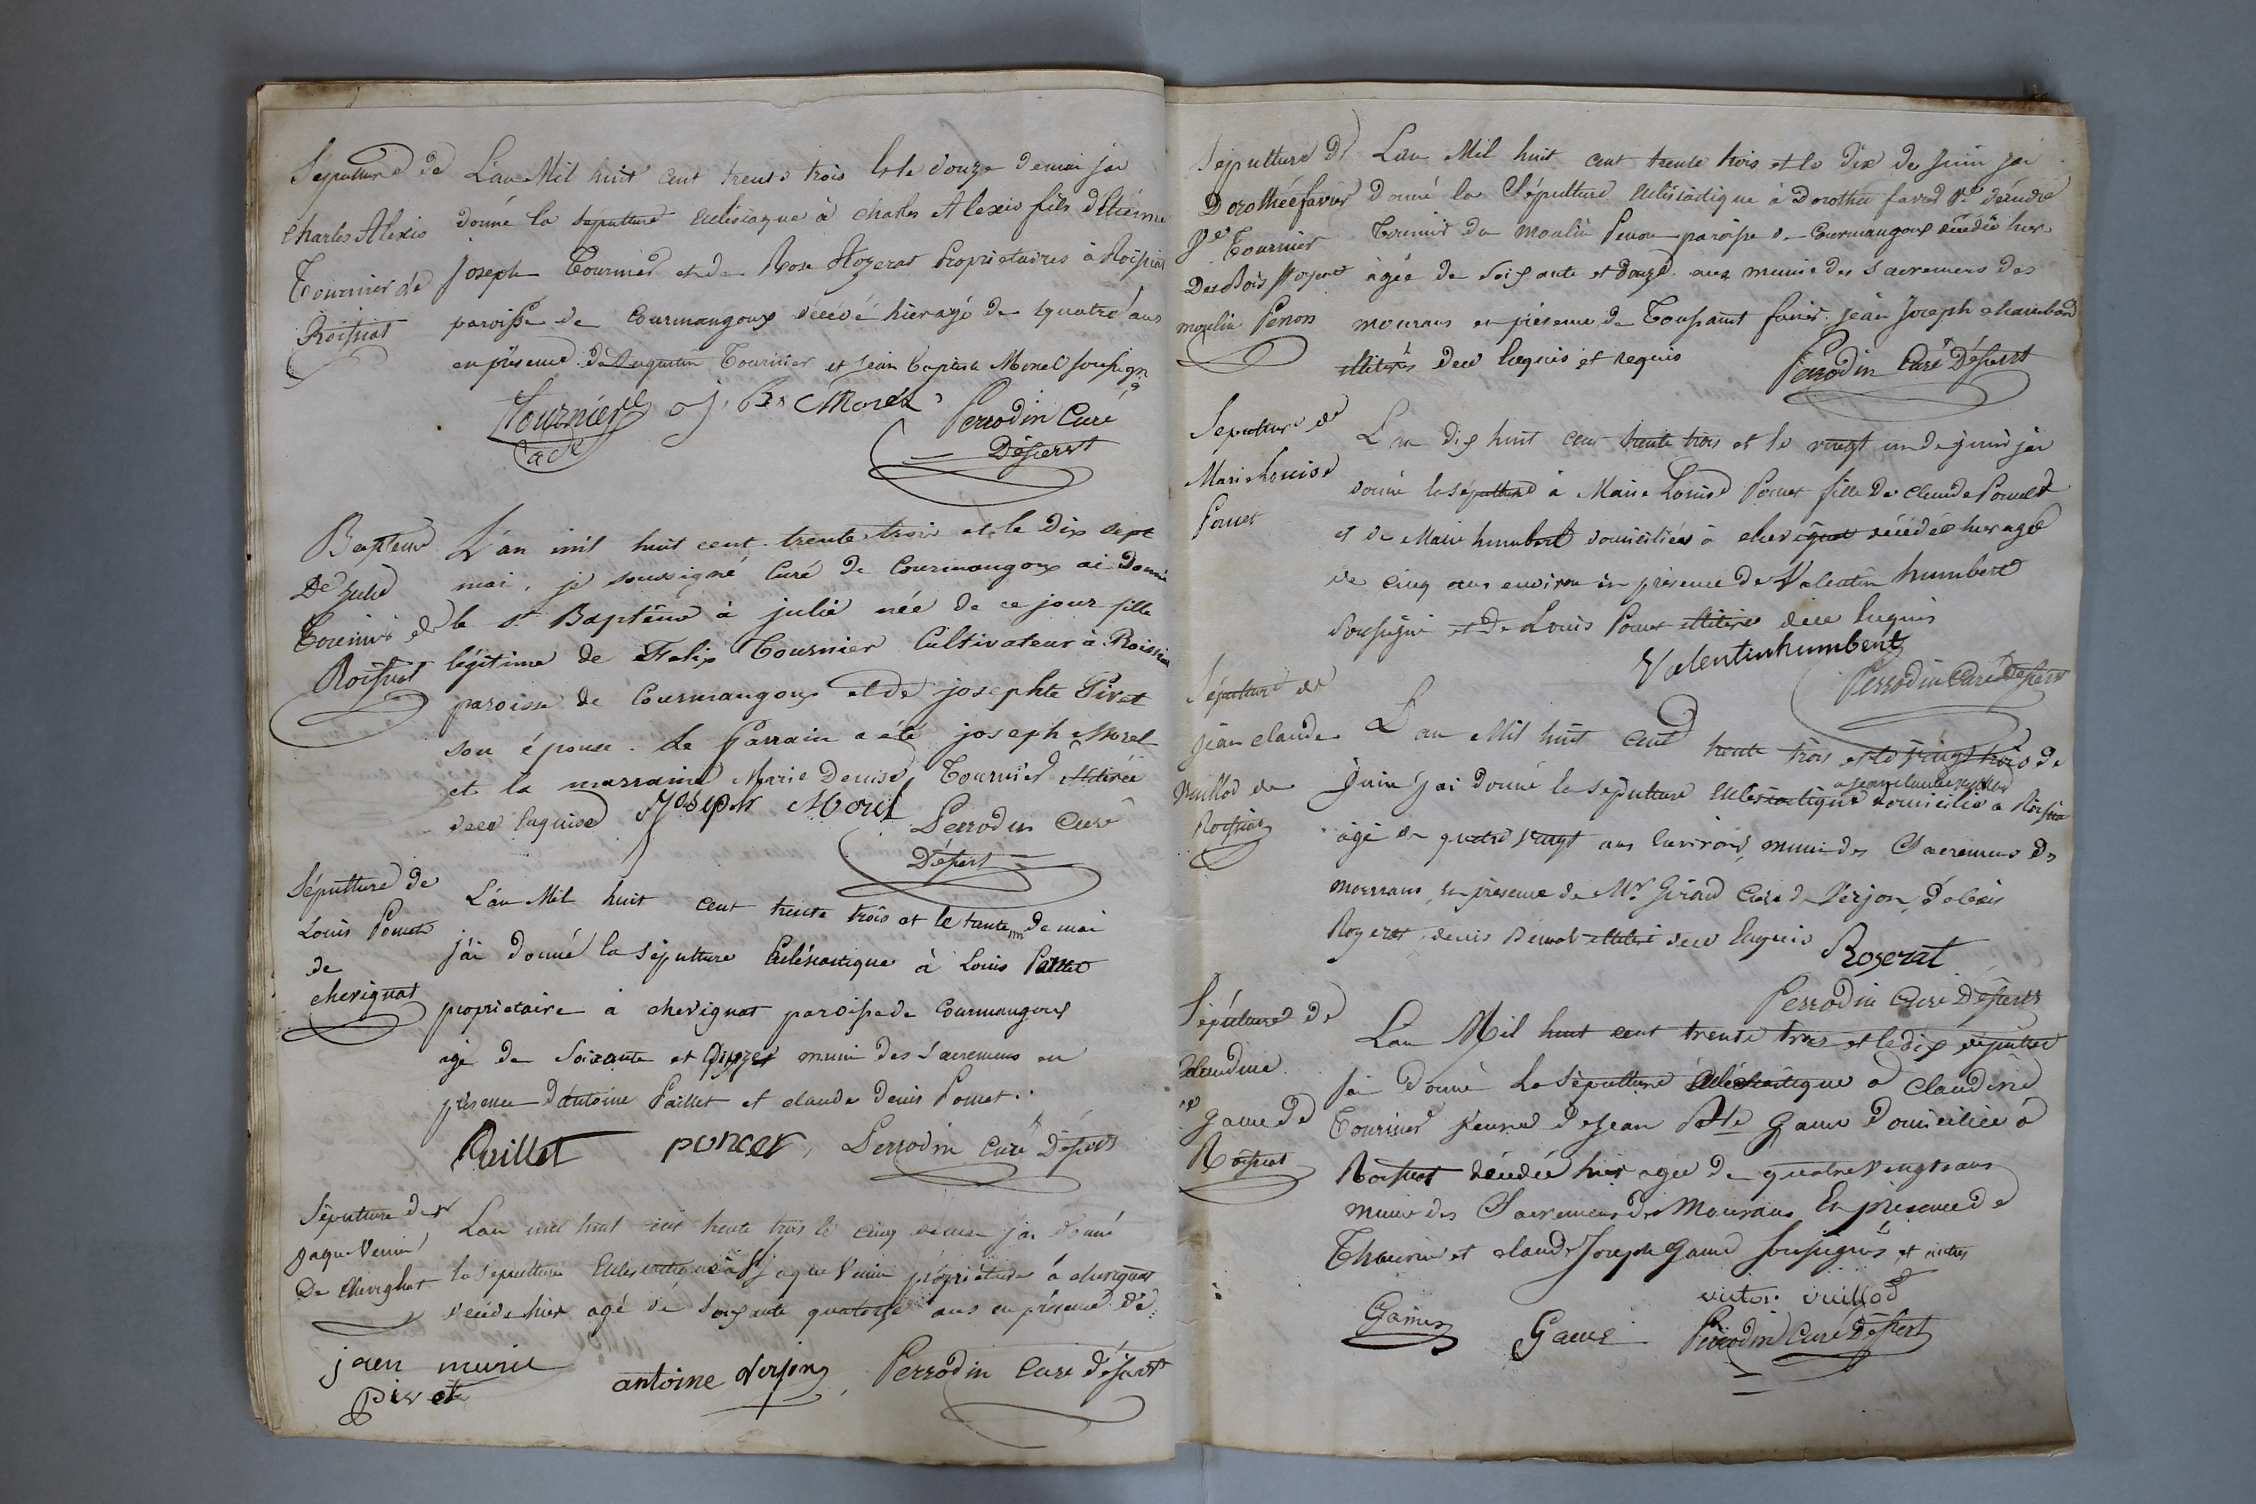 Sépulture de
Charles Alexis
Tournier de
Roissiat
L'an Mil huit cent trente trois et le douze de mai j'ai
donné la sépulture à Charles Alexis fils d'Etienne
Joseph Tournier et de Rose Rozerat Propriétaires à Roissiat
paroisse de Courmangoux décédé hier agé de quatre ans
en présence d'Augustin Tournier et Jean Baptiste Morel soussignés
Tournier J. B. Morel Perrodin Curé
Déssert
Bapteme
De Julie
Tournier de
Roissiat
L'an mil huit cent trente trois et le Dix sept
mai, je soussigné Curé de Courmangoux ai Donné
le St Baptême à julie née de ce jour fille
légitime de Felix Tournier Cultivateur à Roissiat
paroisse de Courmangoux et de josephte Pivet
son épouse. Le Parrain a été joseph Morel
et la marraine Marie Denise Tournier illitérée
de ce enquise Joseph Morel Perrodin Curé
Déssert
Sépulture de
Louis Poncet
de
chevignat
L'an Mil huit cent trente trois et le trente un de mai
j'ai donné la sépulture Ecclésiastique à Louis
propriétaire à chevignat paroisse de Courmangoux
agé de soixante et muni des sacremens en
présence d'antoine Paillet et claude denis Poncet.
Paillet poncet, Perrodin Curé Déssert
Sépulture de
jaque
De Chevignat
L'an mil huit cent trente trois le cinq j'ai donné
la sépulture Ecclésiastique à jaque propriétaire à chevignat
décédé hier agé de soixante quatorze ans en présence de
jaen marie
pivet
antoine Verjon, Perrodin Curé déssert
Sépulture de
Dorothée favier
Ve Tournier
Des Bois
moulin Penon
L'an Mil huit cent trente trois et le dix de Juin j'ai
donné la Sépulture Ecclésiastique à Dorothée favier
Tournier du moulin Penon paroisse de Courmangoux décédée hier
agée de soissante et douze ans munie des sacremens des
mourans en présence de Toussaint favier jean Joseph chambard
illiterés de ce enquis et requis Perrodin Curé Déssert
Sépulture de
Marie Louise
Poncet
L'an dix huit cent trente trois et le vingt un de juin j'ai
donné la sépulture à Marie Louise Poncet fille de Claude Poncet
et de Marie humbert domiciliés à chevignat décédée hier agée
de cinq ans environ en présence de Valentin humbert
soussigné et de Louis Poncet illitéré de ce enquis
Valentin humbert
Perrodin Curé Déssert
Sépulture de
jean claude
Vuillod de
Roissiat
L'an Mil huit cent trente trois et le vingt trois de
Juin j'ai donné la sépulture Ecclésiastique à jean claude vuillod domicilié a Roissiat
agé de quatre vingt ans environ, muni des Sacremens des
mourans, en présence de Mr Girard Curé de Verjon, d'alexis
Rozerat, denis illitéré de ce enquis
Rozerat
Perrodin Curé Déssert
Sépulture de
Claudine
Game de
Roissiat
L'an Mil huit cent trente trois et le dix
j'ai donné la sépulture Ecclésiastique à Claudine
Tournier veuve de Jean Bte Game Domiciliée à
Roissiat décédée hier agée de quatre vingts ans
munie des Sacremens des Mourans En présence de
et claude Joseph Game soussignés et autres
victor vuillod
Game Game Perrodin Curé Déssert